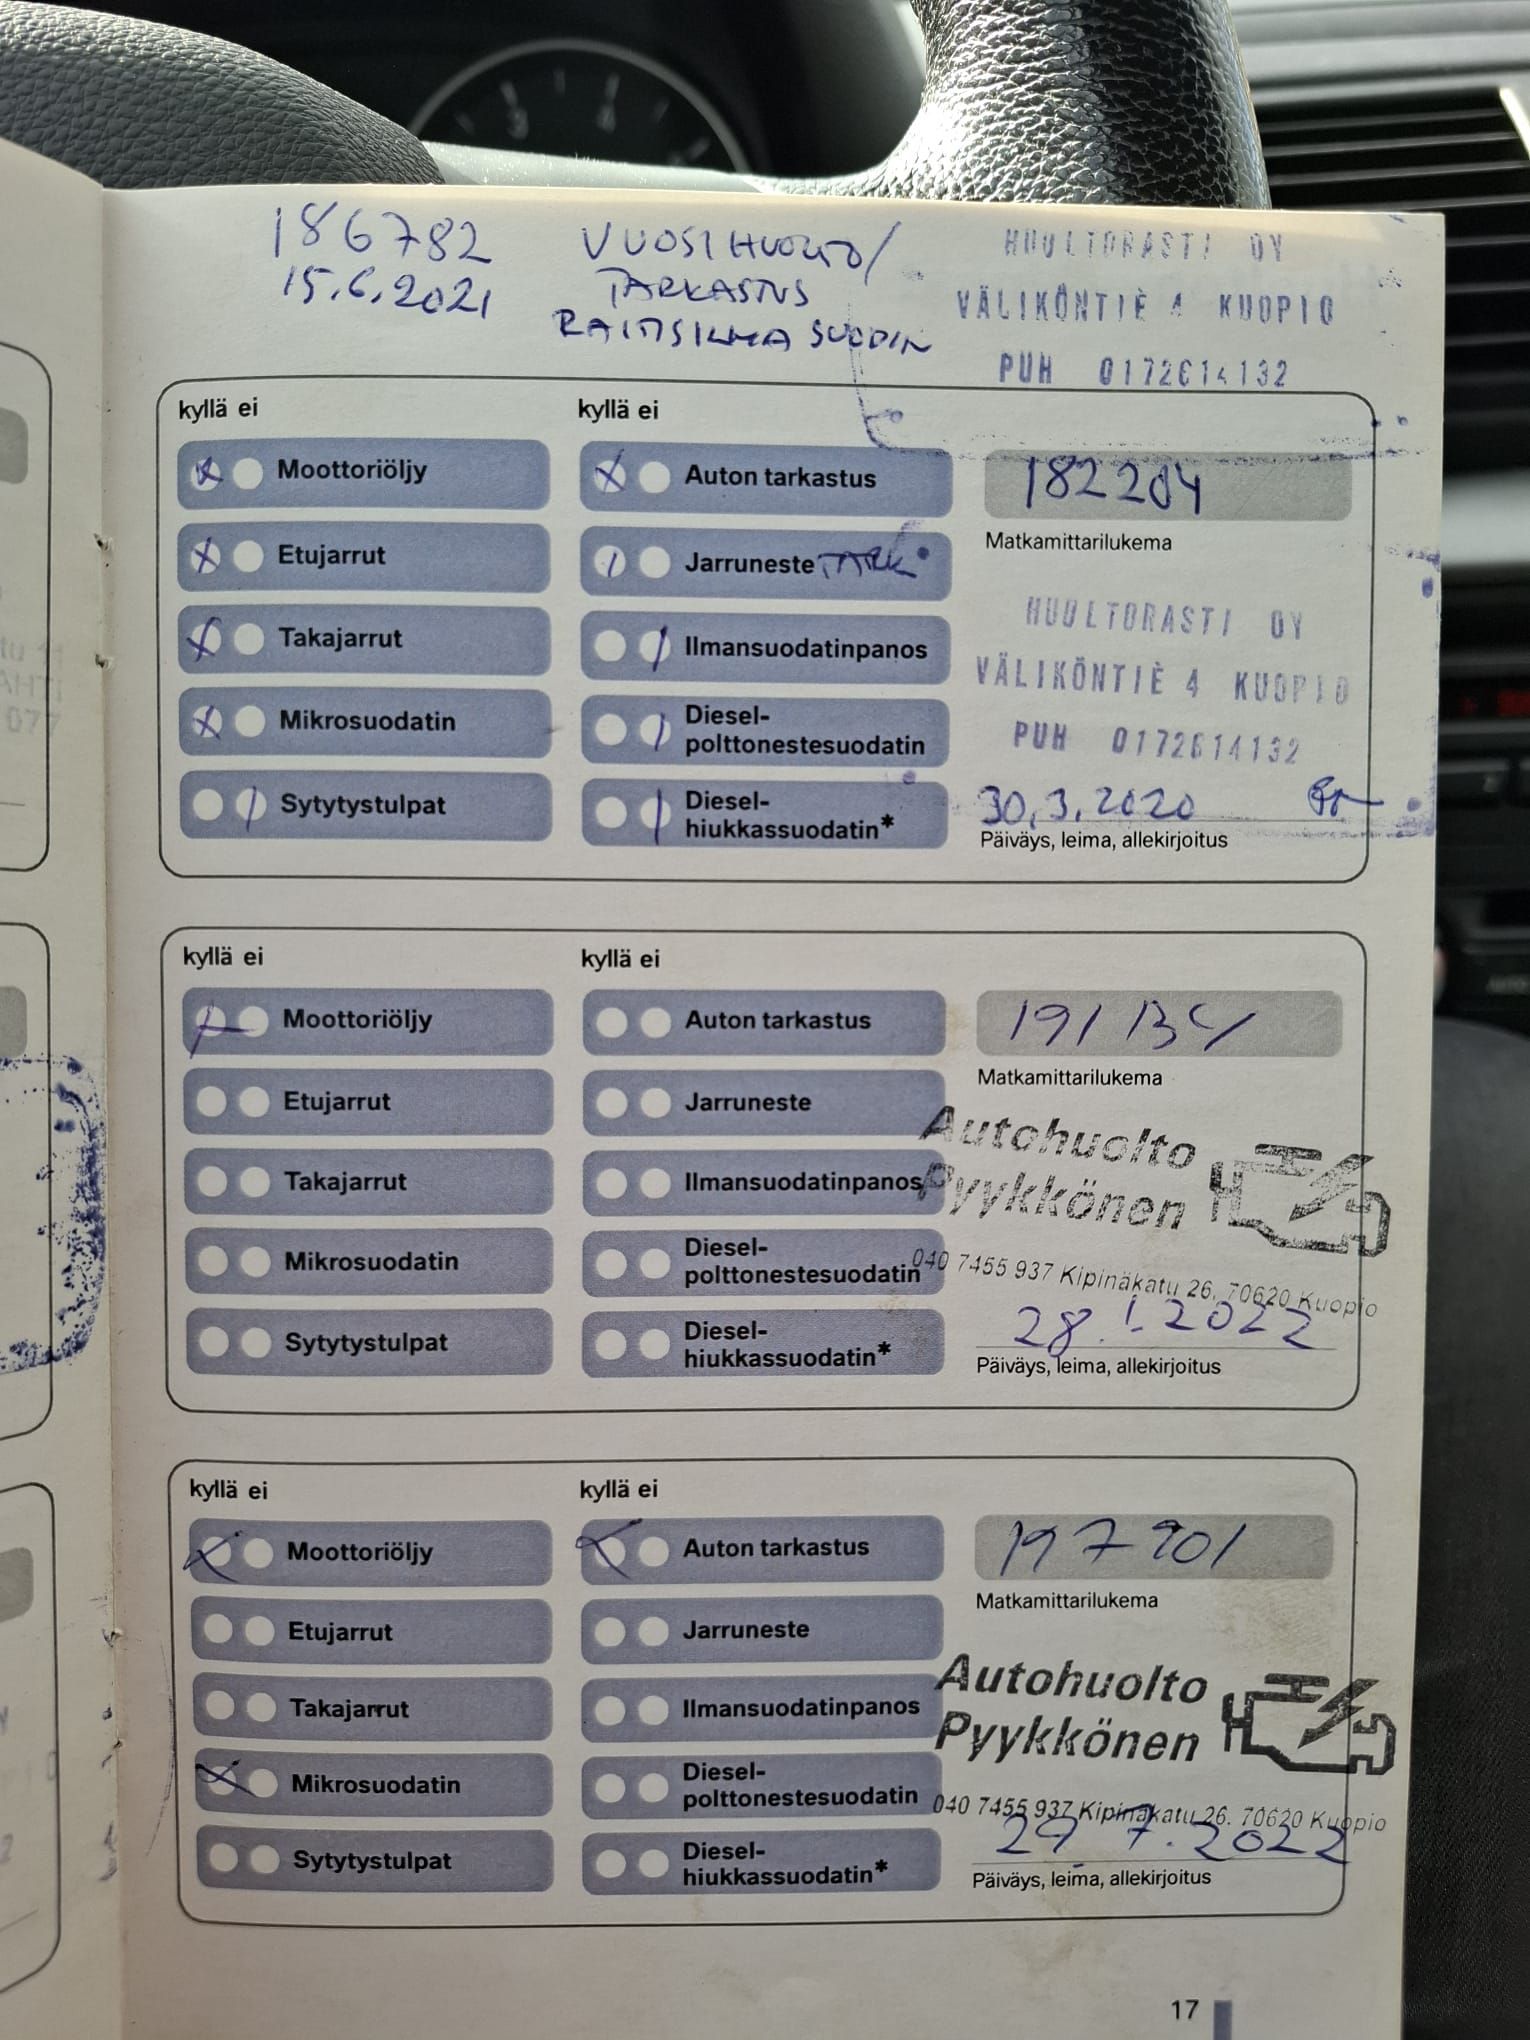 186782 VUOSIHUOLTO/ HUOLTORASTI OY
15.6.2021 TARKASTUS VÄLIKÖNTIE 4 KUOPIO
RAITISILMA SUODIN PUH 0172614132
kyllä ei kyllä ei
Moottoriöljy Auton tarkastus 182204
Matkamittarilukema
Etujarrut Jarruneste TARK
HUOLTORASTI OY
Takajarrut Ilmansuodatinpanos
VÄLIKÖNTIE 4 KUOPIO
Mikrosuodatin Diesel-
polttonestesuodatin
PUH 0172614132
Sytytystulpat Diesel-
hiukkassuodatin*
30.3.2020
Päiväys, leima, allekirjoitus
kyllä ei kyllä ei
Moottoriöljy Auton tarkastus 191134
Matkamittarilukema
Etujarrut Jarruneste
Autohuolto
Takajarrut Ilmansuodatinpanos
Pyykkönen
Mikrosuodatin Diesel-
polttonestesuodatin
040 7455 937 Kipinäkatu 26, 70620 Kuopio
Sytytystulpat Diesel-
hiukkassuodatin*
28.1.2022
Päiväys, leima, allekirjoitus
kyllä ei kyllä ei
Moottoriöljy Auton tarkastus 197901
Matkamittarilukema
Etujarrut Jarruneste
Autohuolto
Takajarrut Ilmansuodatinpanos
Pyykkönen
Mikrosuodatin Diesel-
polttonestesuodatin
040 7455 937 Kipinäkatu 26. 70620 Kuopio
Sytytystulpat Diesel-
hiukkassuodatin*
29.7.2022
Päiväys, leima, allekirjoitus
17